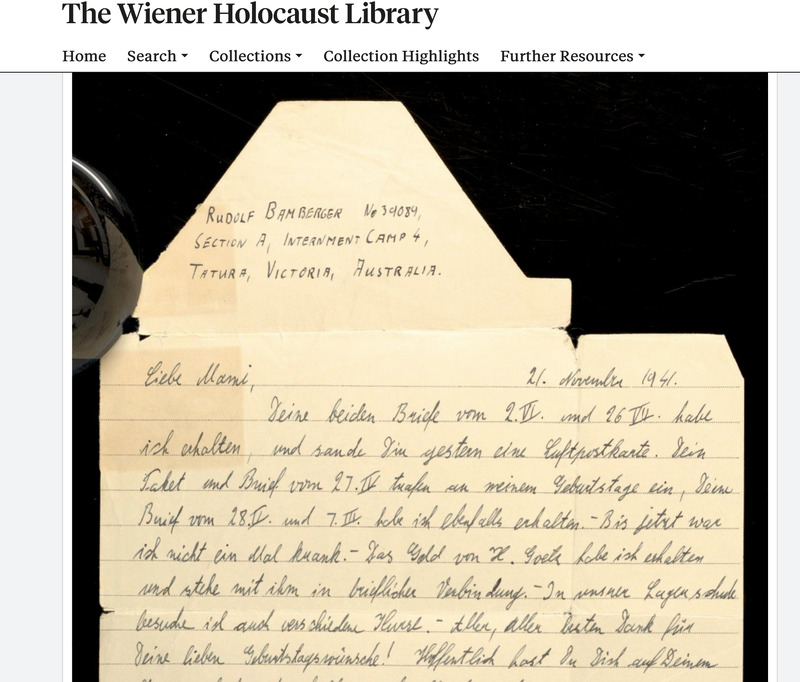 The Wiener Holocaust Library
Home Search Collections Collection Highlights Further Resources
RUDOLF BAMBERGER No 39089,
SECTION A, INTERNMENT CAMP 4,
TATURA, VICTORIA, AUSTRALIA.
Liebe Mami, 21. November 1941.
Deine beiden Briefe vom 2.VI. und 26 habe
ich erhalten, und sande Dir gestern eine Luftpostkarte. Dein
Paket und Brief vom 27.IV trafen an meinem Geburtstage ein, Deine
Brief vom 28. und 7. habe ich ebenfalls erhalten.- Bis jetzt war
ich nicht ein Mal krank.- Das Geld von H. Goetz habe ich erhalten
und stehe mit ihm in brieflicher Verbindung.- In unsrer Lagerschule
besuche ich auch verschiedene Kurse.- Aller, aller besten Dank für
Deine lieben Geburtstagswünsche! Hoffentlich hast Du Dich auf Deinem